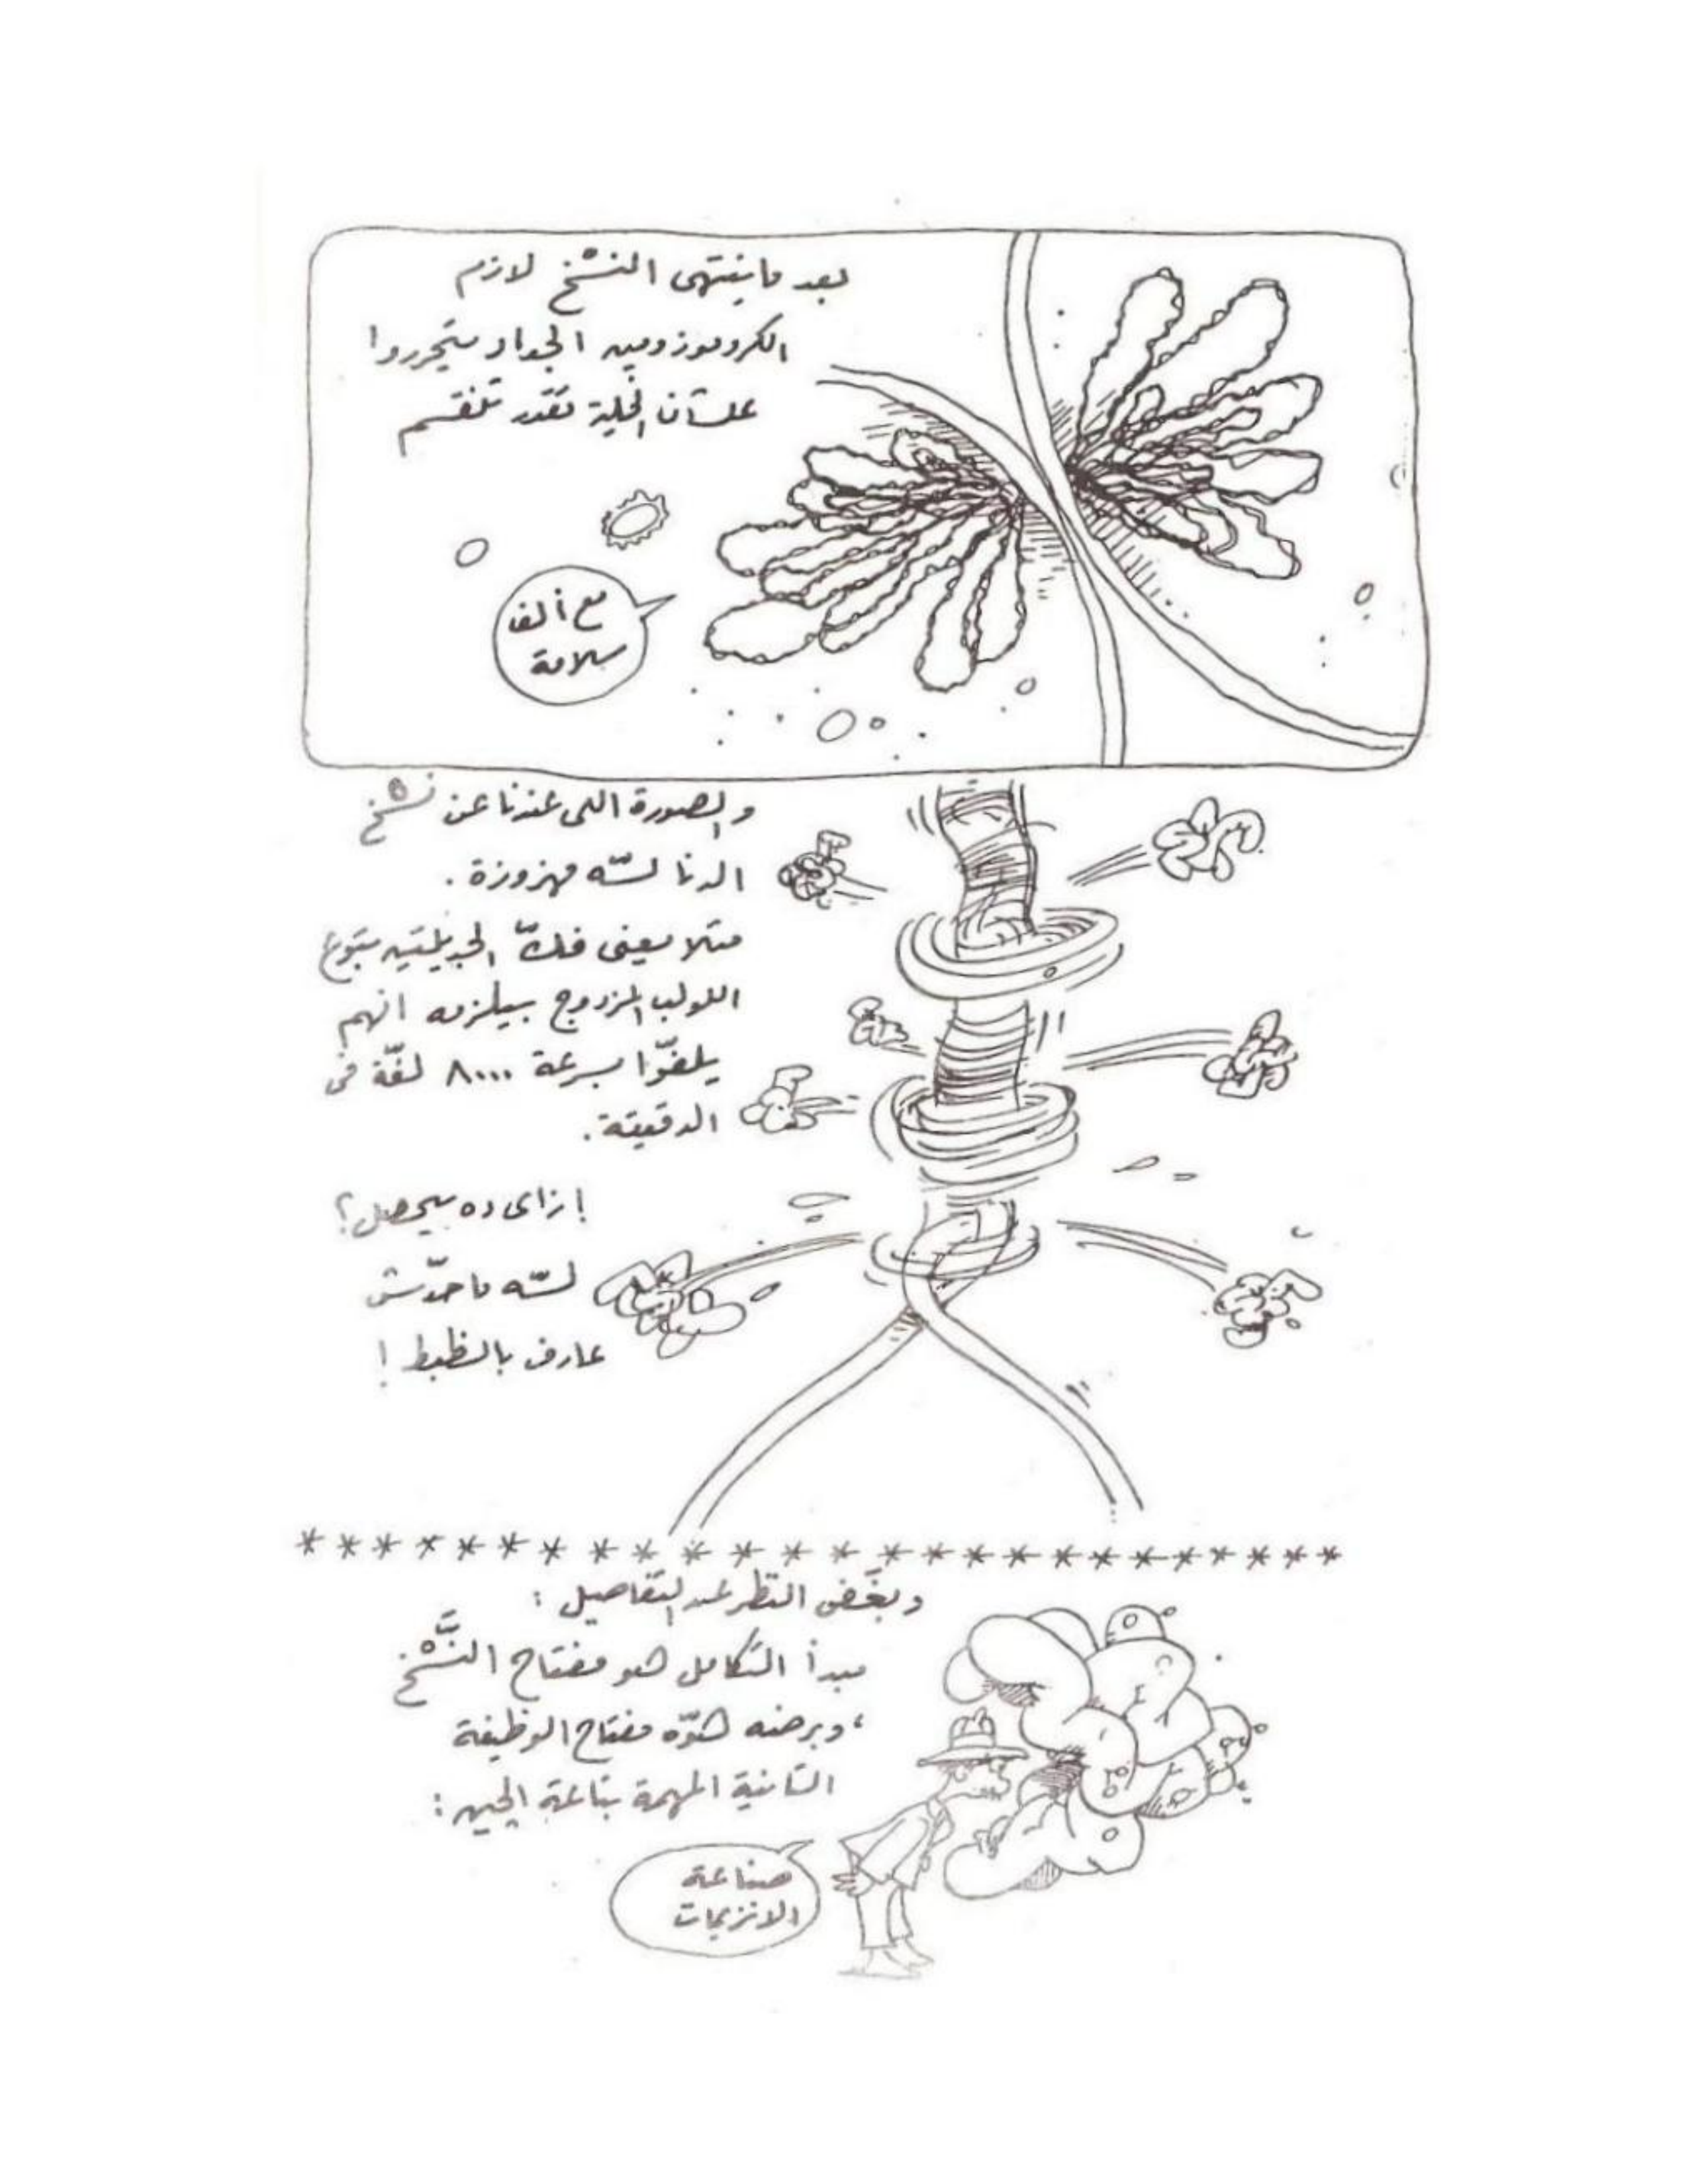 بعد ماينتهى النسْخ لازم
الكروموزومين الجداد يتحرروا
علشان الخلية تقدر تنقسم
مع ألف
سلامة
والصورة اللى عندنا عن نسْخ
الدنا لسّه مهزوزة.
مثلا يعنى فكّ الجديلتين بتوع
اللولب المزدوج بيلزمه انهم
يلفّوا بسرعة ٨٠٠٠ لفّة فى
الدقيقة.
إزاى ده بيحصل؟
لسّه ماحدّش
عارف بالظبط!
* * * * * * * * * * * * * * * * * * * * * * * * * *
وبغَض النظر عن التفاصيل:
مبدأ التكامل هو مفتاح النَّسْخ
، وبرضه هوّه مفتاح الوظيفة
التانية المهمة بتاعة الچين:
صناعة
الانزيمات